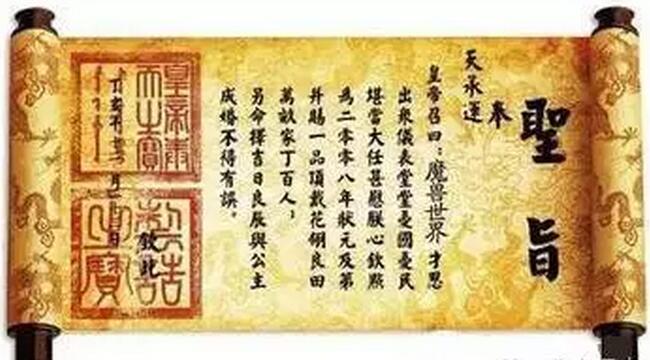 聖旨
奉
天承運
皇帝召曰：魔兽世界 才思
出衆儀表堂堂憂國憂民
堪當大任甚慰朕心欽點
為二零零八年狀元及第
并賜一品頂戴花翎良田
萬畝家丁百人；
另命擇吉日良辰與公主
成婚不得有誤。
欽此